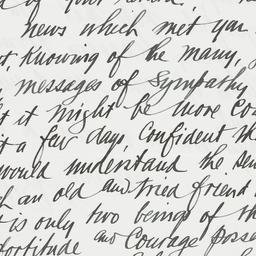 of your
news which met you
Knowing of the many,
messages of Sympathy
it might be more
a few days, Confident
would understand the
an old and tried friend
is only two beings of
fortitude and Courage